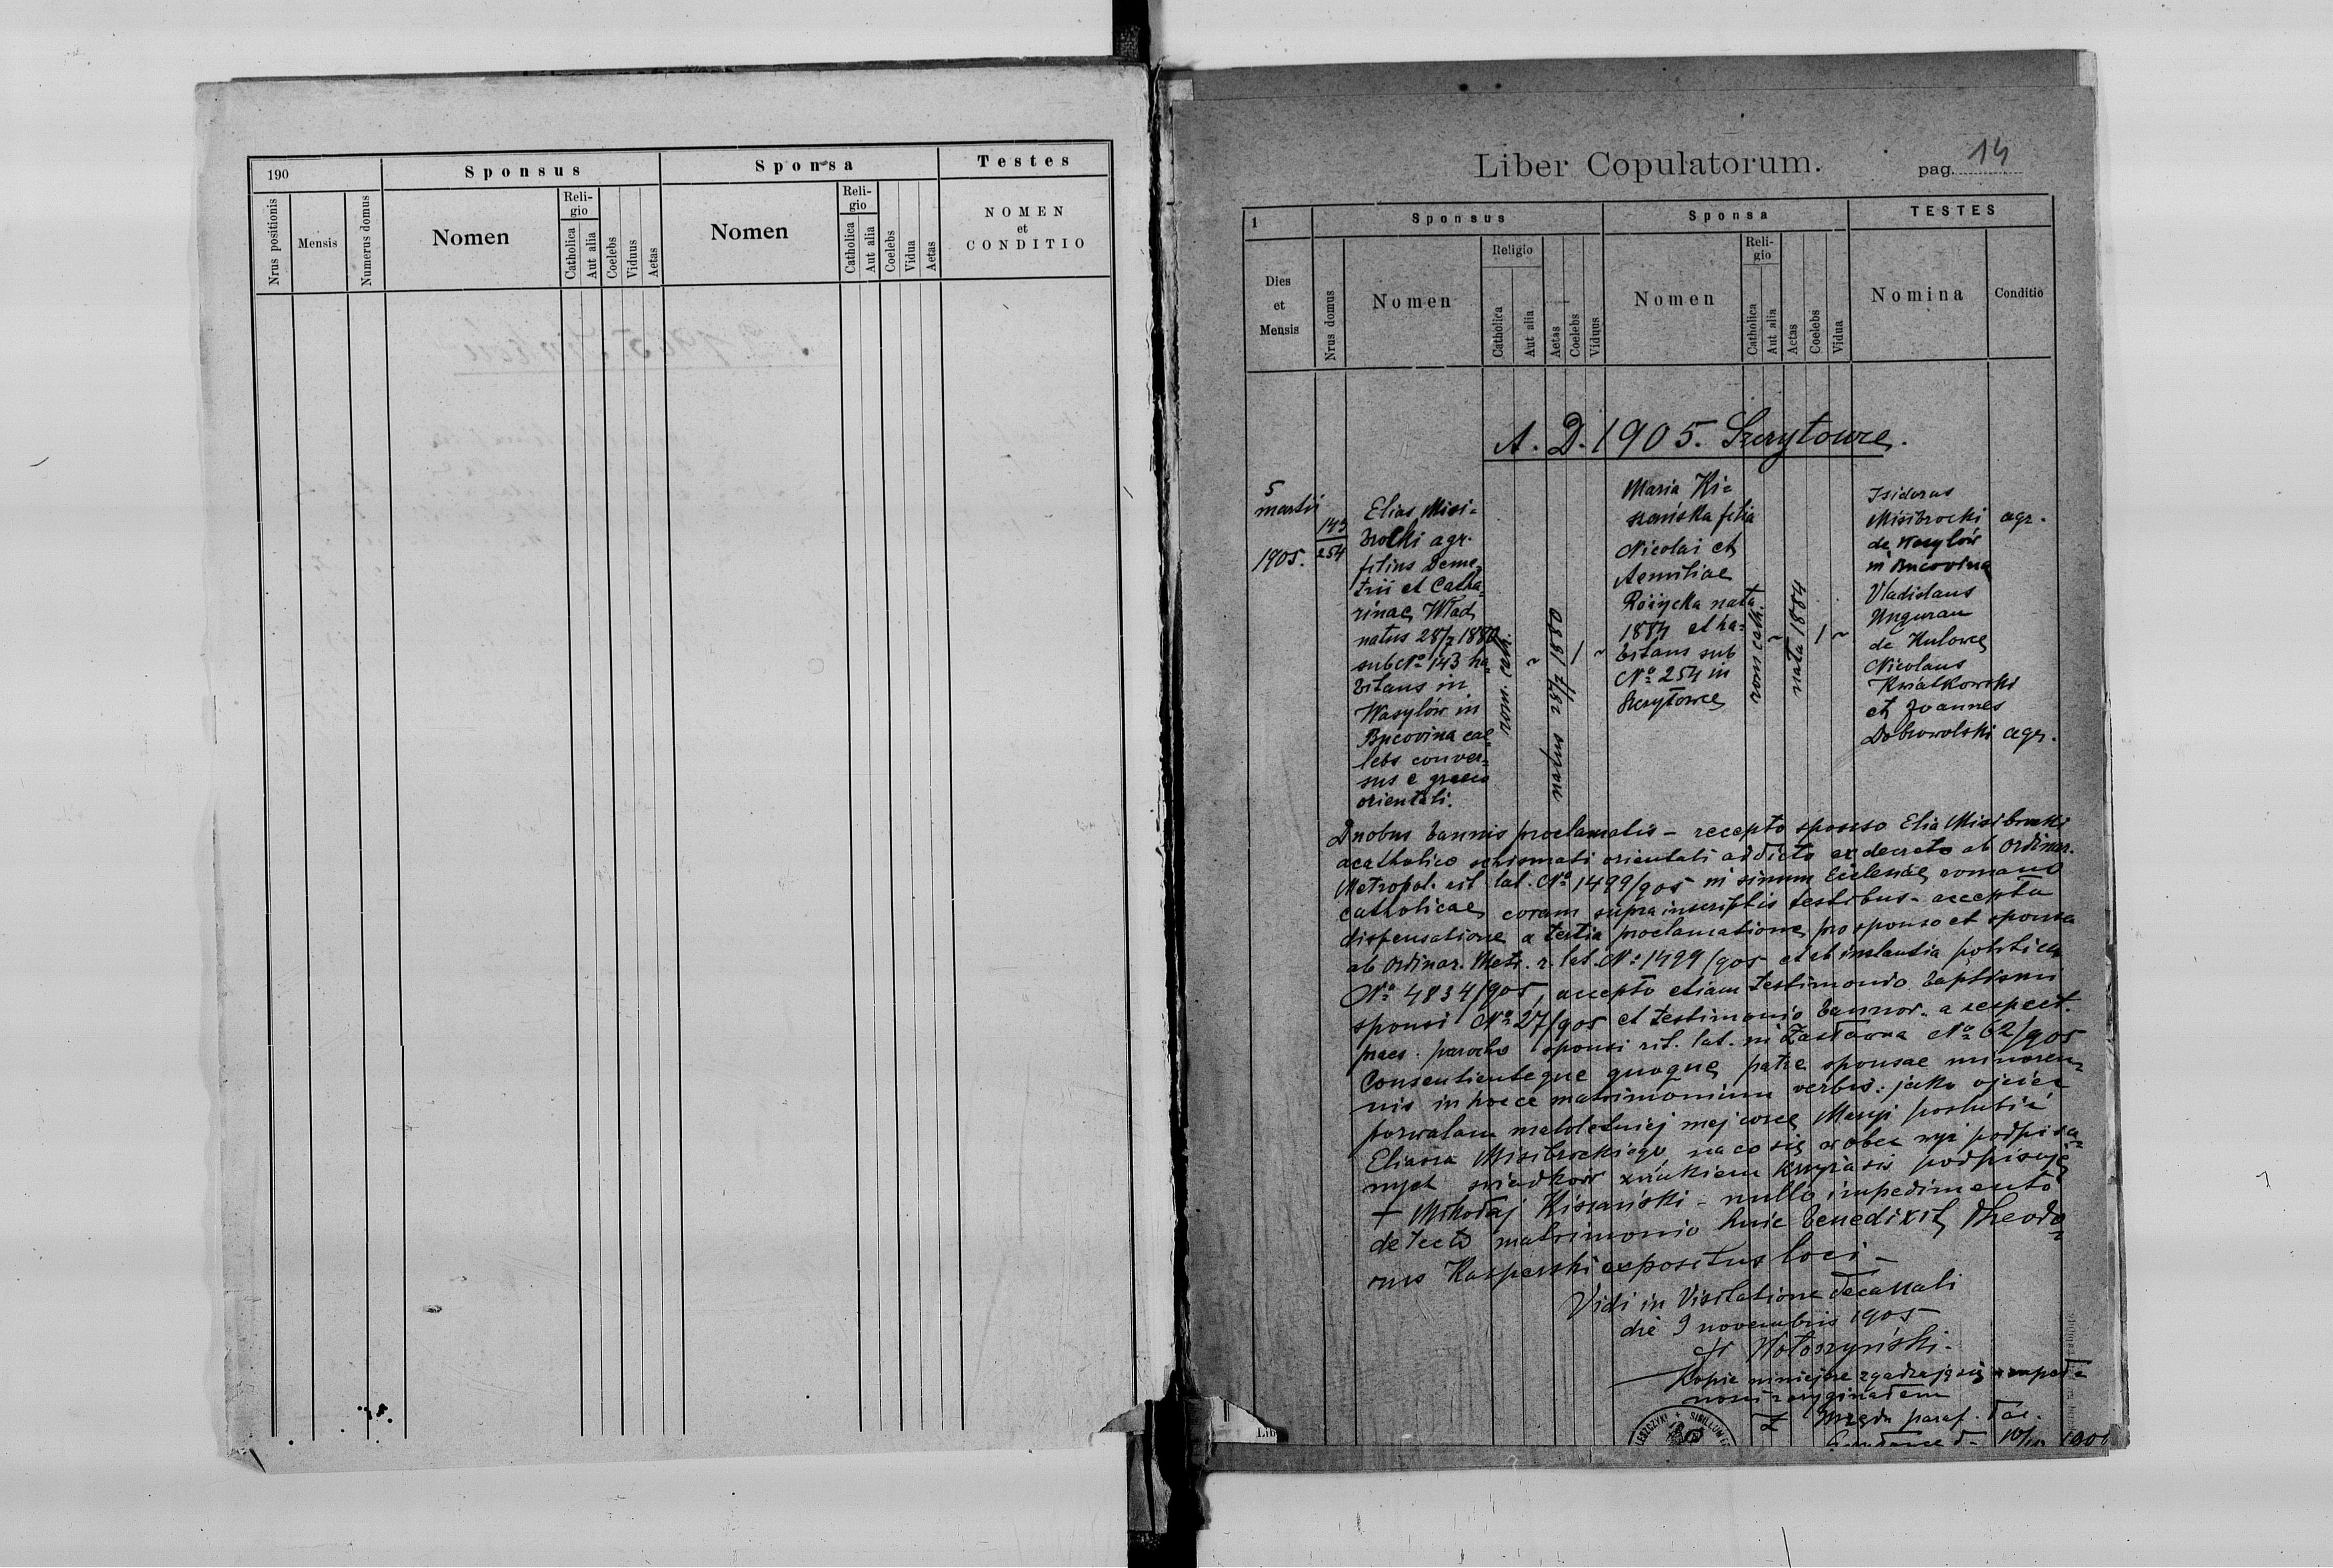 190
Sponsus
Sponsa
Testes
Nrus positionis
Mensis
Numerus domus
Nomen
Religio
Catholica
Aut alia
Coelebs
Viduus
Aetas
Nomen
Religio
Catholica
Aut alia
Coelebs
Vidua
Aetas
NOMEN
et
CONDITIO
Liber Copulatorum.
pag. 14
1
Sponsus
Sponsa
TESTES
Dies
et
Mensis
Nrus domus
Nomen
Religio
Catholica
Aut alia
Aetas
Coelebs
Viduus
Nomen
Reli-
gio
Catholica
Aut alia
Aetas
Coelebs
Vidua
Nomina
Conditio
A. D. 1905. Szczytowce.
5
martii
1905.
143
254
Elias Misi=
brocki agr.
filius Deme=
trii et Catha=
rinae Wład
natus 28/7 1880
sub No 143 ha=
bitans in
Wasylów in
Bucovina cae=
lebs conver=
sus e graeco
orientali.
rom. cath.
~
natus 28/7 1880
/
~
Maria Ki=
szańska filia
Nicolai et
Aemiliae
Różycka nata
1884 et ha=
bitans sub
No 254 in
Szczytowce
rom cath.
~
nata 1884
/
~
Isidorus
Misibrocki agr.
de Wasylów
in Bucovina
Vladislaus
Unguran
de Kulowce
Nicolaus
Kwiatkowski
et Joannes
Dobrowolski agr.
Duobus bannis proclamatis - recepto sponso Elia Misibrocki
acatholico schismati orientali addicto ex decreto ab Ordinar.
Metropol. rit. lat. No 1499/905 in sinum Ecclesiae romano
catholicae coram supra inscriptis testibus - accepta
dispensatione a tertia proclamatione pro sponso et sponsa
ab Ordinar. Metr. r. lat. No 1499/905 et ab instantia politica
No 4834/905, accepto etiam testimonio baptismi
sponsi No 27/905 et testimonio bannor. a respect.
paes. parocho sponsi rit. lat. in Zastawna No 62/905
Consentienteque quoque patre sponsae minoren=
nis in hocce matrimonium verbis: jako ojciec
pozwalam małoletniej mej córce Maryi poślubić
Eliasza Misibrockiego, na co się wobec wyż podpisa=
nych świadków znakiem krzyża się podpisuję
+ Mikołaj Kiszański - nullo impedimento
detecto matrimonio huic benedixit Theodo=
rus Kasperski expositus loci -
Vidi in Visitatione decanali
die 9 novembris 1905
Wołoszyński.
Kopie niniejsze zgadzają się zupeł=
ności z oryginałem
Z Urzędu paraf. łac.